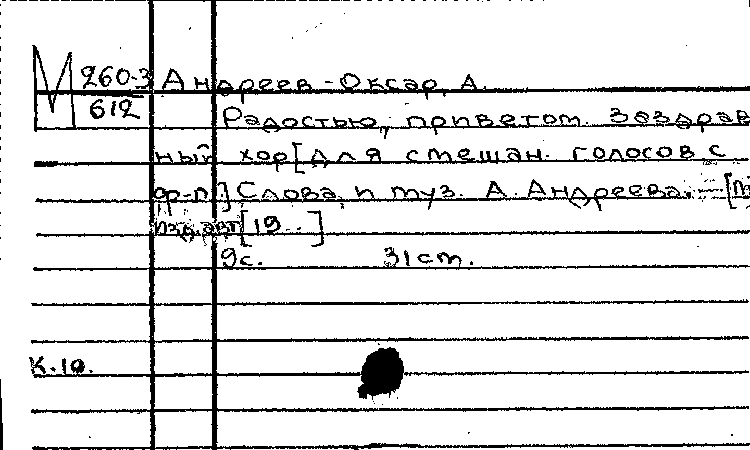 М 260-3 Андреев-Оксар, А.
612
Радостью, приветом. Заздрав
ный хор [для смешан. голосов с
ф-п.] Слова и муз. А. Андреева. — [П
Изд. авт [19..]
9с. 31 ст.
К.10.